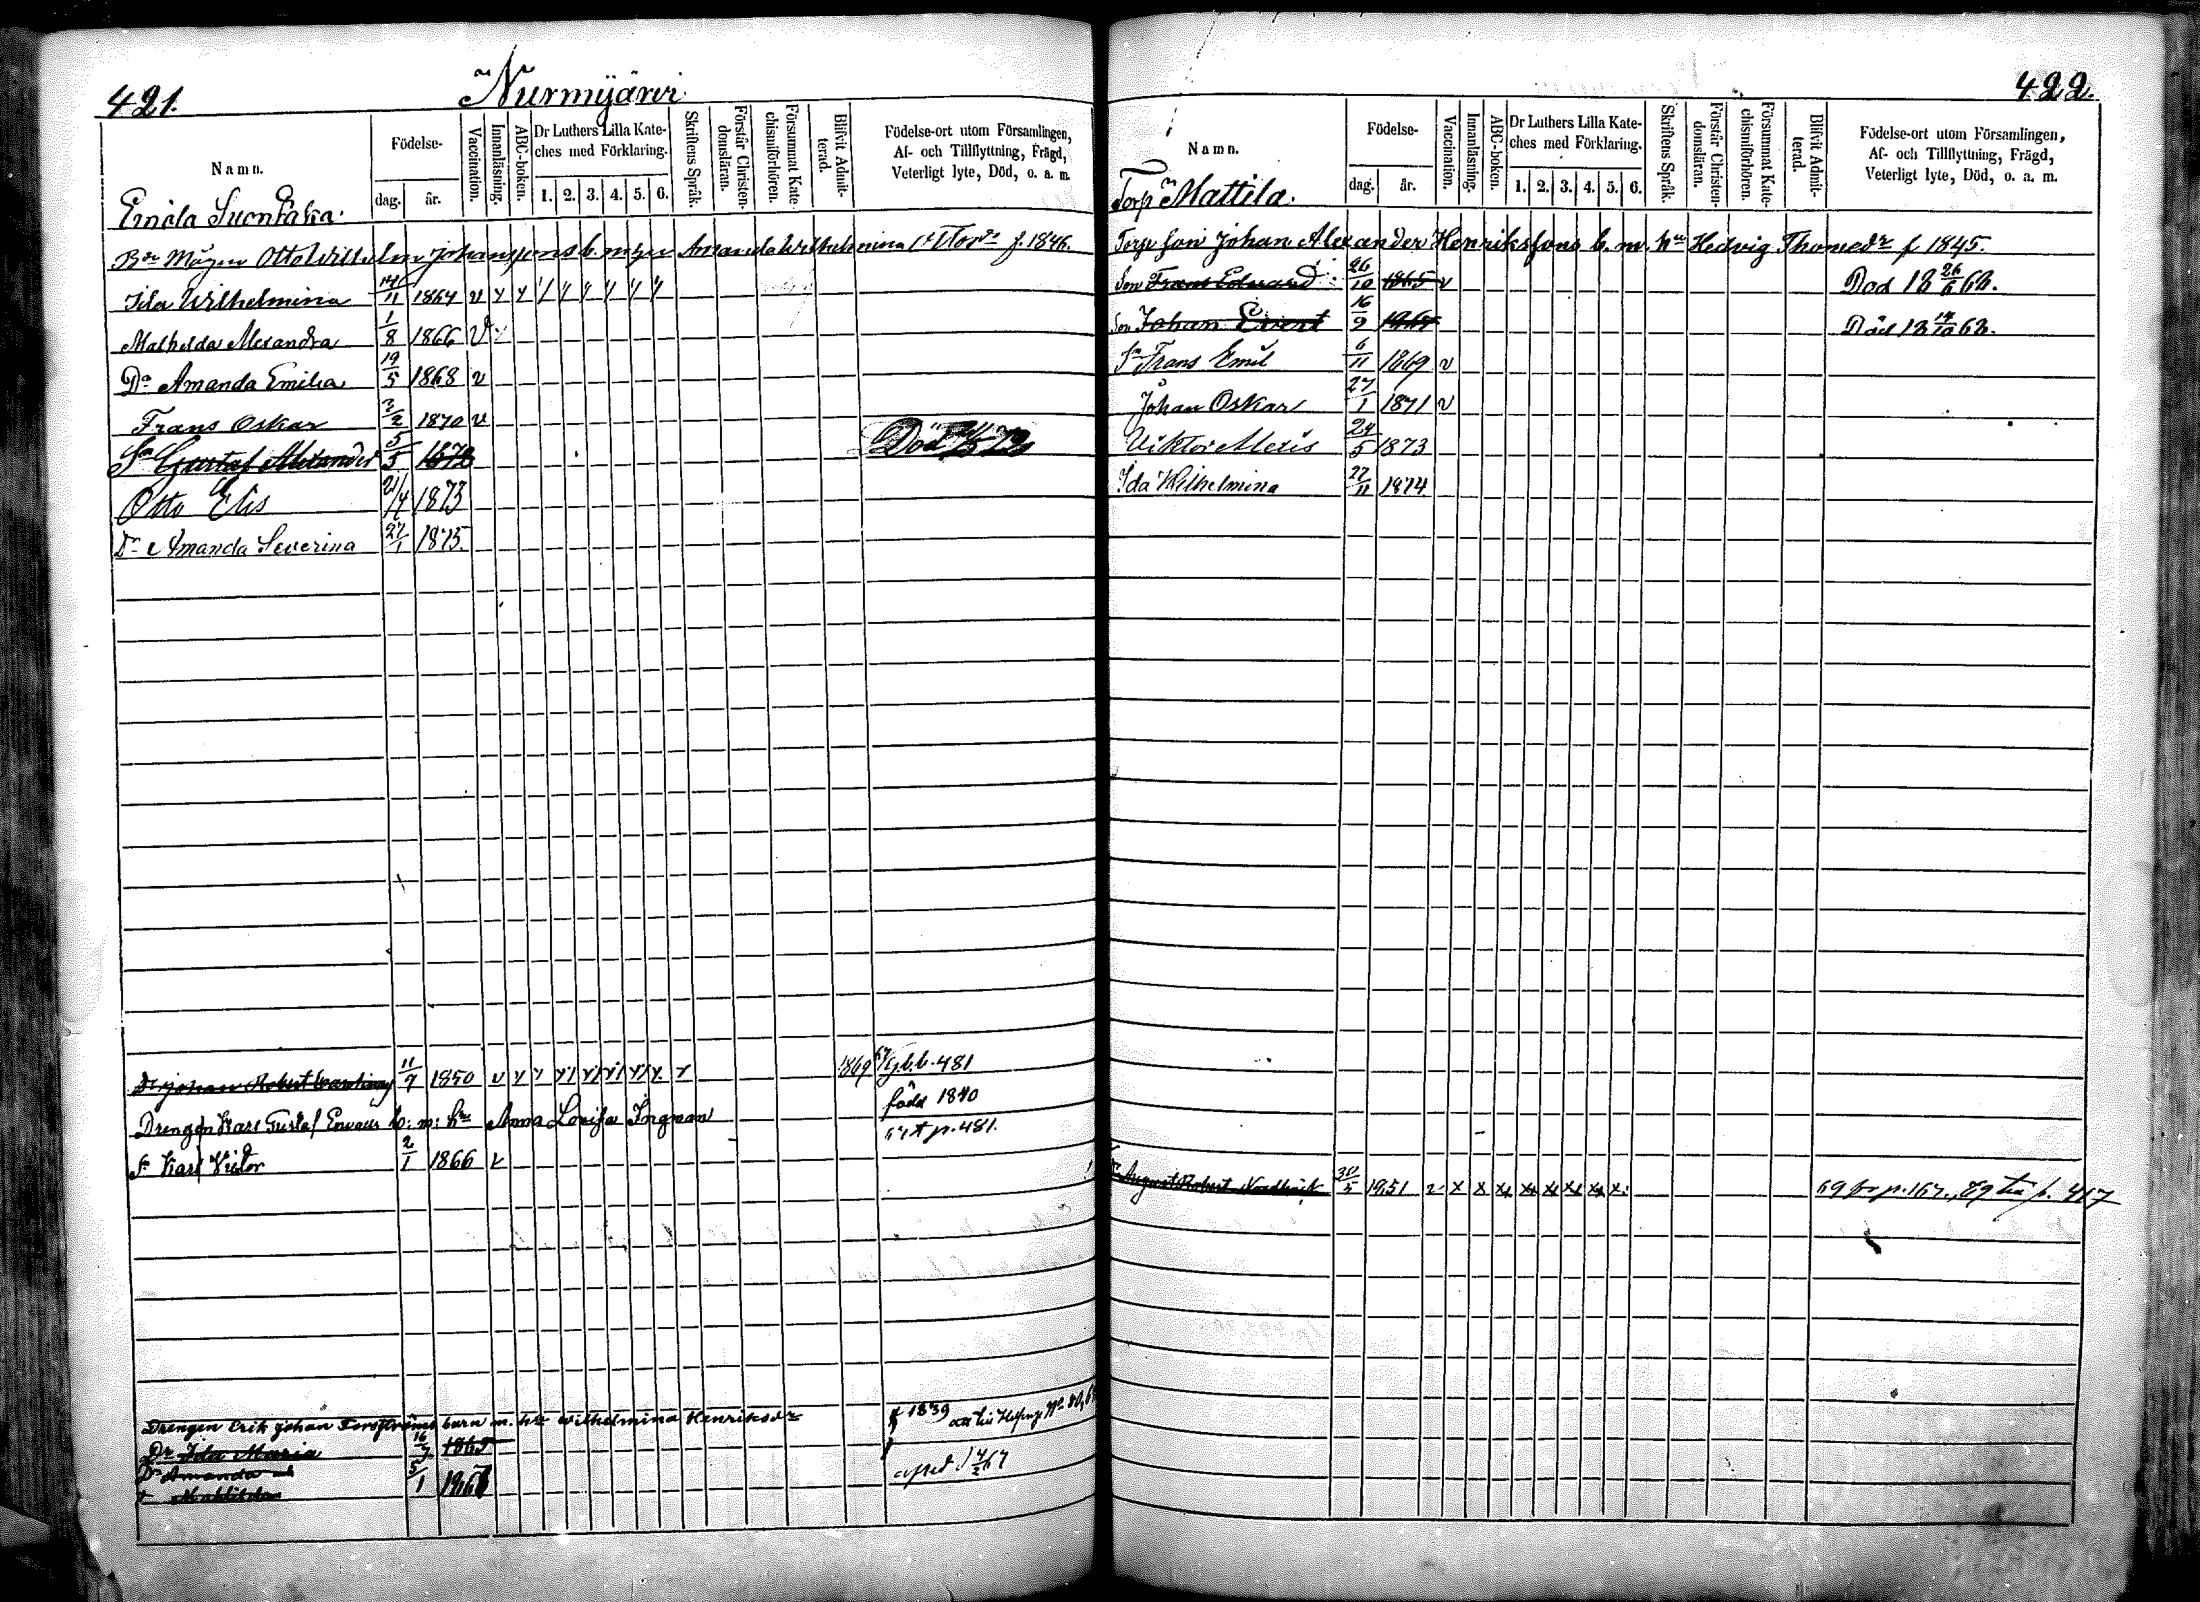 421.
Nurmijärvi
Namn.
Födelse-
dag. år.
Vaccination.
Innanläsning.
ABC-boken.
Dr Luthers Lilla Kate-
ches med Förklaring.
1. 2. 3. 4. 5. 6.
Skriftens Språk.
Förstår Christen-
domsläran.
Försummat Kate-
chismiförhören.
Blifvit Admit-
terad.
Födelse-ort utom Församlingen,
Af- och Tillflyttning, Frägd,
Veterligt lyte, Död, o. a. m.
Otto Wilhelm Johanssons b. m. Amanda Wilhelmina f. 1846.
Ida Wilhelmina 14/11 1864 v
Mathilda Alexandra 1/8 1866 v
Dr Amanda Emilia 19/5 1868 v
Frans Oskar 3/2 1870 v
Sn Gustaf Alexander 5/5 1872 Död
Otto Elis 21/4 1873
Dr Amanda Severina 27/1 1875.
Johan Robert 11/9 1850 v 1869 b. 481
född 1840
Drengen Karl Gustaf b: m: hu Anna Lovisa Ingman
p. 481.
Sn Karl Victor 2/1 1866 v
Drengen Erik Johan Forsströms barn m. hu Wilhelmina Henriksdr f 1839
Dr Ida Maria 16/7 1865
Dr Amanda 5/1 1867
Mathilda
422.
Namn.
Födelse-
dag. år.
Vaccination.
Innanläsning.
ABC-boken.
Dr Luthers Lilla Kate-
ches med Förklaring.
1. 2. 3. 4. 5. 6.
Skriftens Språk.
Förstår Christen-
domsläran.
Försummat Kate-
chismiförhören.
Blifvit Admit-
terad.
Födelse-ort utom Församlingen,
Af- och Tillflyttning, Frägd,
Veterligt lyte, Död, o. a. m.
Torp Mattila.
Torp son Johan Alexander Henrikssons b. m. hu Hedvig Thomedr f 1845.
Son Frans Edvard 26/10 1865 v Död 18 26/6 68.
Son Johan Evert 16/9 1867 Död 18 14/10 68.
Sn Frans Emil 6/11 1869 v
Johan Oskar 27/1 1871 v
Viktor Alexis 24/5 1873
Ida Wilhelmina 22/11 1874
August Robert 30/5 1851 v x x x x x x x x 69 fr p. 167., 89 till p. 417